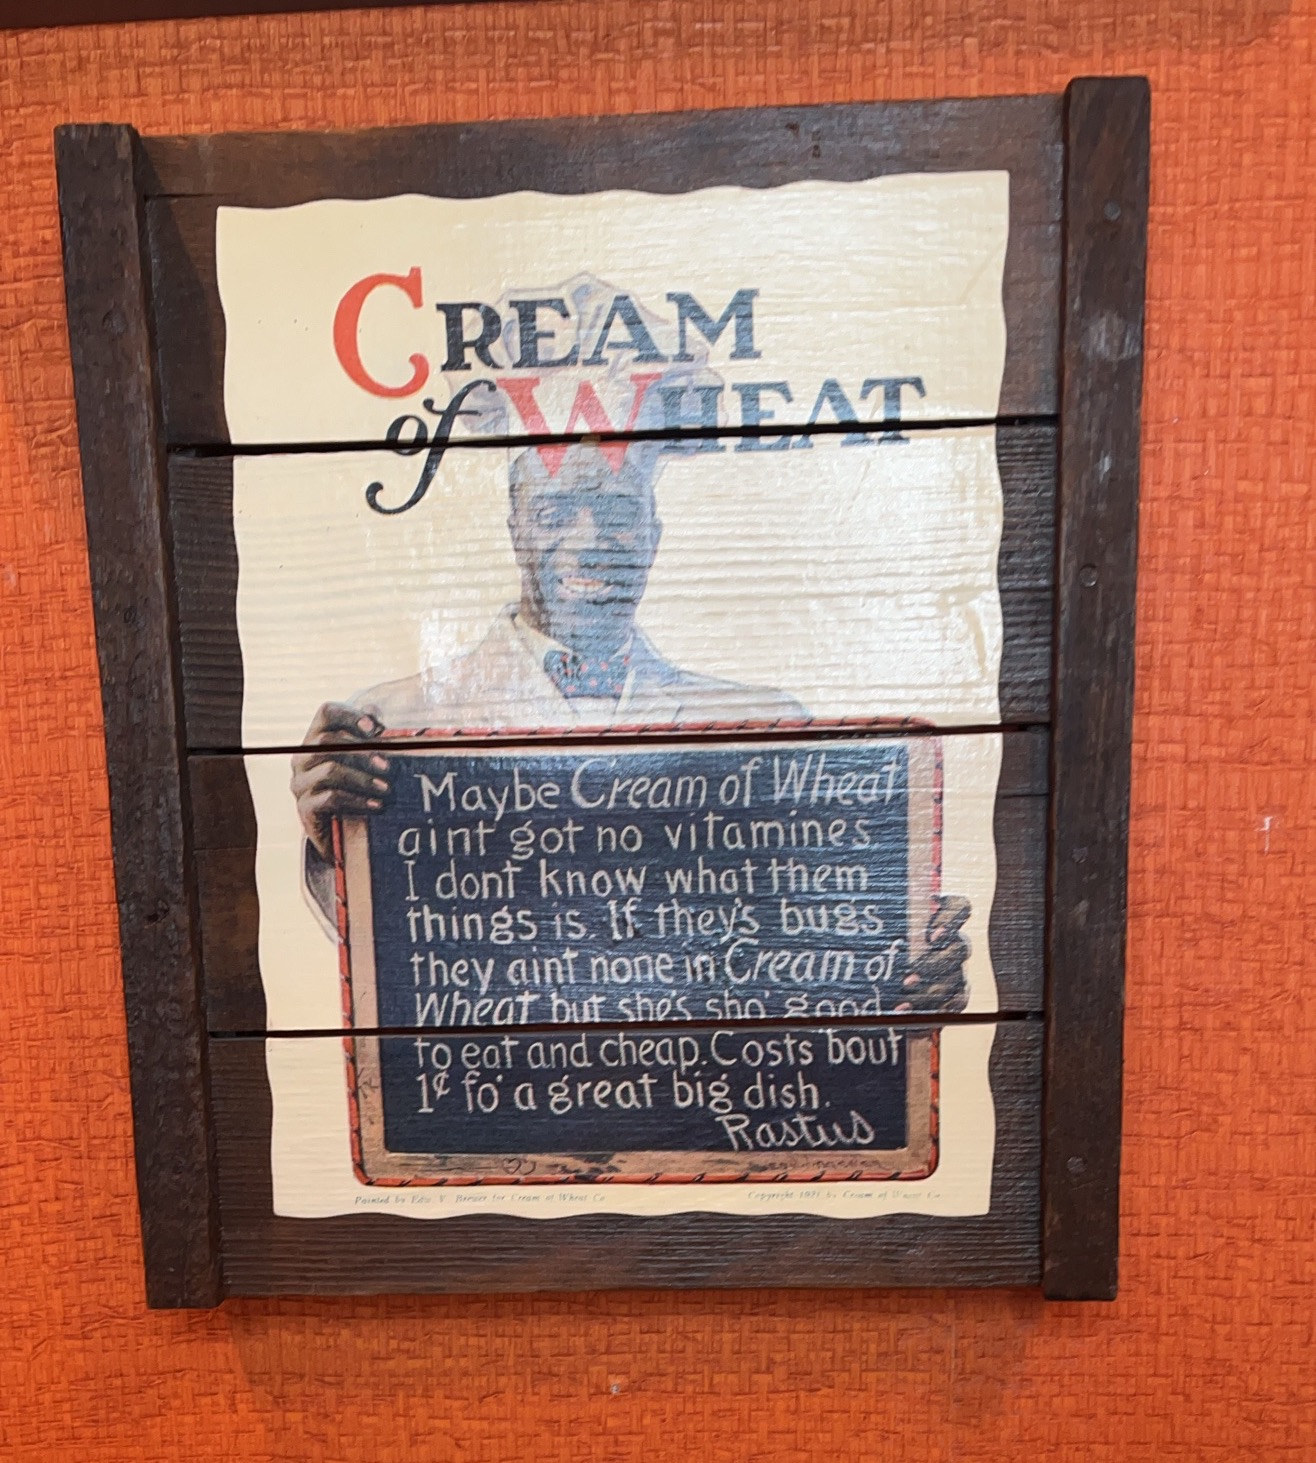 CREAM
of WHEAT
Maybe Cream of Wheat
aint got no vitamines.
I dont know what them
things is. If they's bugs
they aint none in Cream of
Wheat but she's sho' good
to eat and cheap. Costs 'bout
1¢ fo' a great big dish.
Rastus
Painted by Edw. V. Brewer for Cream of Wheat Co.
Copyright 1921 by Cream of Wheat Co.